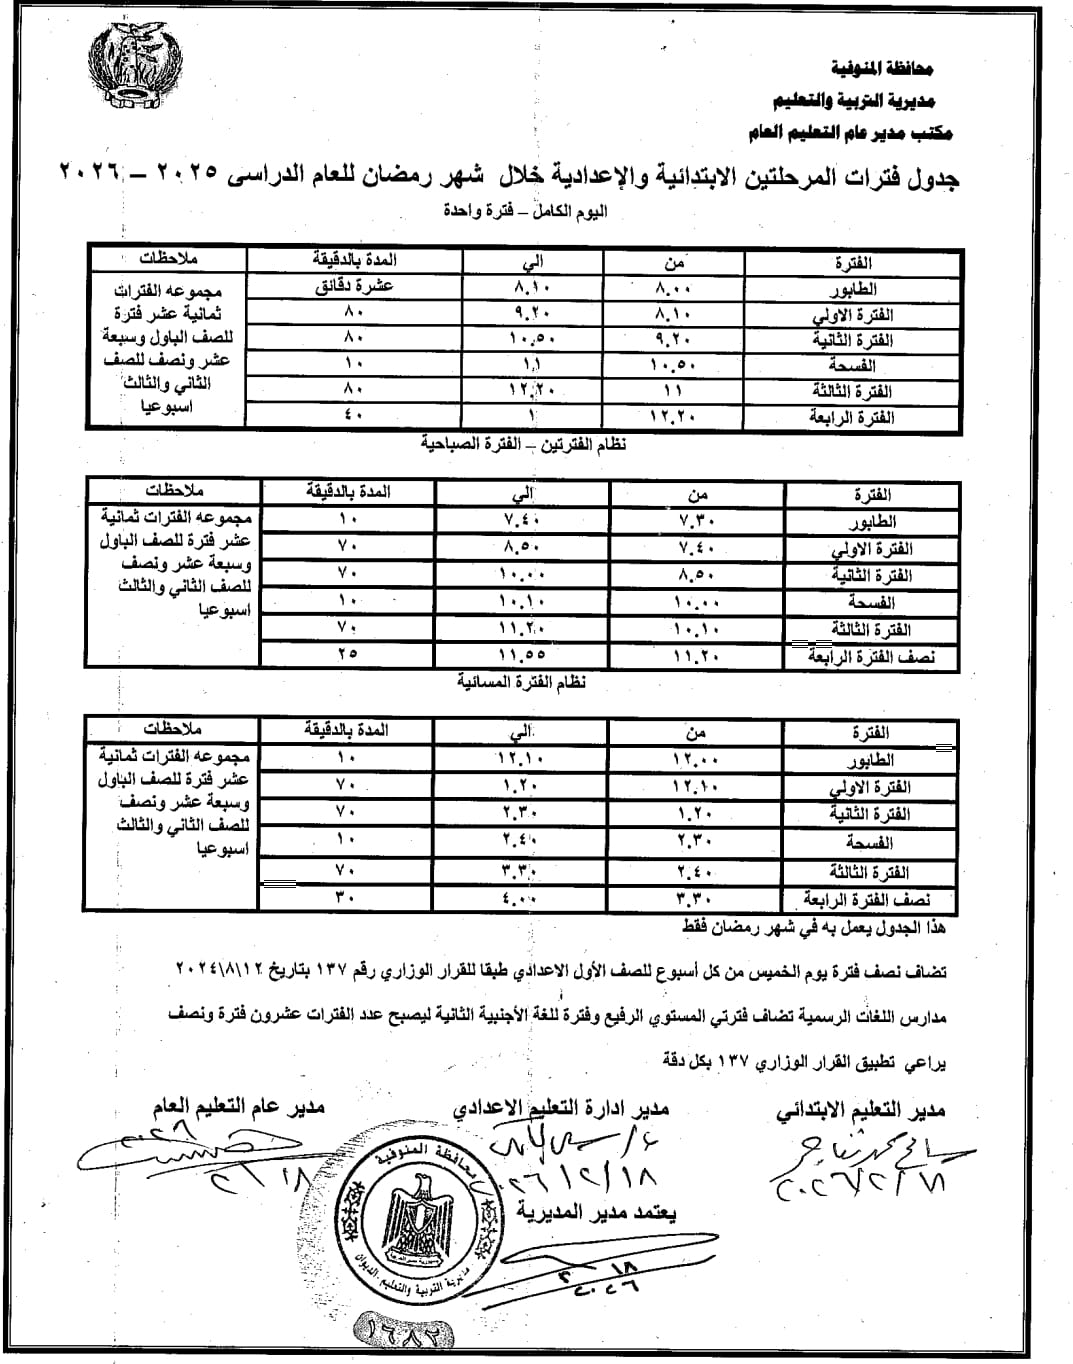 محافظة المنوفية
مديرية التربية والتعليم
مكتب مدير عام التعليم العام
جدول فترات المرحلتين الابتدائية والإعدادية خلال شهر رمضان للعام الدراسى ٢٠٢٥ – ٢٠٢٦
اليوم الكامل – فترة واحدة
الفترة من الي المدة بالدقيقة ملاحظات
الطابور ٨.٠٠ ٨.١٠ عشرة دقائق مجموعه الفترات
الفترة الاولي ٨.١٠ ٩.٢٠ ٨٠ ثمانية عشر فترة
الفترة الثانية ٩.٢٠ ١٠.٥٠ ٨٠ للصف الباول وسبعة
الفسحة ١٠.٥٠ ١١ ١٠ عشر ونصف للصف
الفترة الثالثة ١١ ١٢.٢٠ ٨٠ الثاني والثالث
الفترة الرابعة ١٢.٢٠ ١ ٤٠ اسبوعيا
نظام الفترتين – الفترة الصباحية
الفترة من الي المدة بالدقيقة ملاحظات
الطابور ٧.٣٠ ٧.٤٠ ١٠ مجموعه الفترات ثمانية
الفترة الاولي ٧.٤٠ ٨.٥٠ ٧٠ عشر فترة للصف الباول
الفترة الثانية ٨.٥٠ ١٠.٠٠ ٧٠ وسبعة عشر ونصف
الفسحة ١٠.٠٠ ١٠.١٠ ١٠ للصف الثاني والثالث
الفترة الثالثة ١٠.١٠ ١١.٢٠ ٧٠ اسبوعيا
نصف الفترة الرابعة ١١.٢٠ ١١.٥٥ ٢٥
نظام الفترة المسائية
الفترة من الي المدة بالدقيقة ملاحظات
الطابور ١٢.٠٠ ١٢.١٠ ١٠ مجموعه الفترات ثمانية
الفترة الاولي ١٢.١٠ ١.٢٠ ٧٠ عشر فترة للصف الباول
الفترة الثانية ١.٢٠ ٢.٣٠ ٧٠ وسبعة عشر ونصف
الفسحة ٢.٣٠ ٢.٤٠ ١٠ للصف الثاني والثالث
الفترة الثالثة ٢.٤٠ ٣.٣٠ ٧٠ اسبوعيا
نصف الفترة الرابعة ٣.٣٠ ٤.٠٠ ٣٠
هذا الجدول يعمل به في شهر رمضان فقط
تضاف نصف فترة يوم الخميس من كل أسبوع للصف الأول الاعدادي طبقا للقرار الوزاري رقم ١٣٧ بتاريخ ١٢\٨\٢٠٢٤
مدارس اللغات الرسمية تضاف فترتي المستوي الرفيع وفترة للغة الأجنبية الثانية ليصبح عدد الفترات عشرون فترة ونصف
يراعي تطبيق القرار الوزاري ١٣٧ بكل دقة
مدير التعليم الابتدائي مدير ادارة التعليم الاعدادي مدير عام التعليم العام
يعتمد مدير المديرية
محافظة المنوفية
مديرية التربية والتعليم - الديوان
١٦٨٢